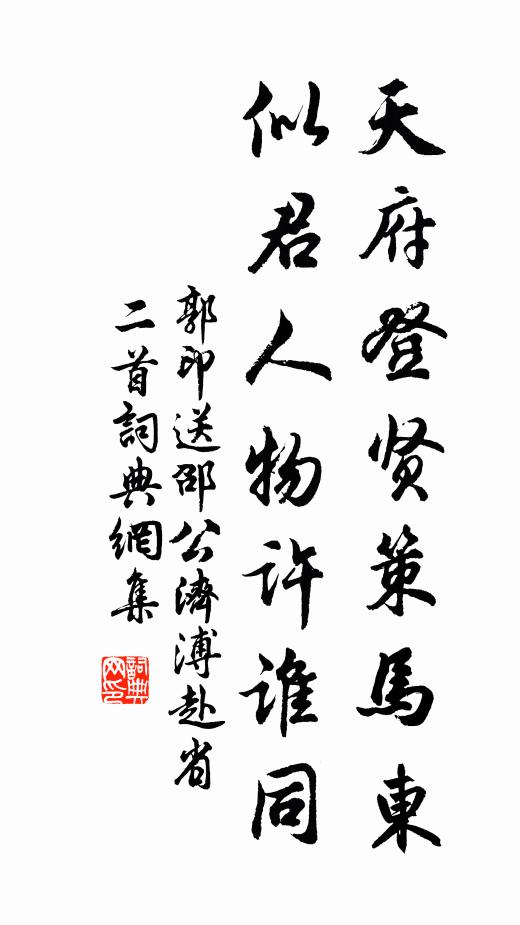 天府登贤策馬東
似君人物许谁同
郭印送邵公濟溥赴省
二首詞典網集
詞典网印